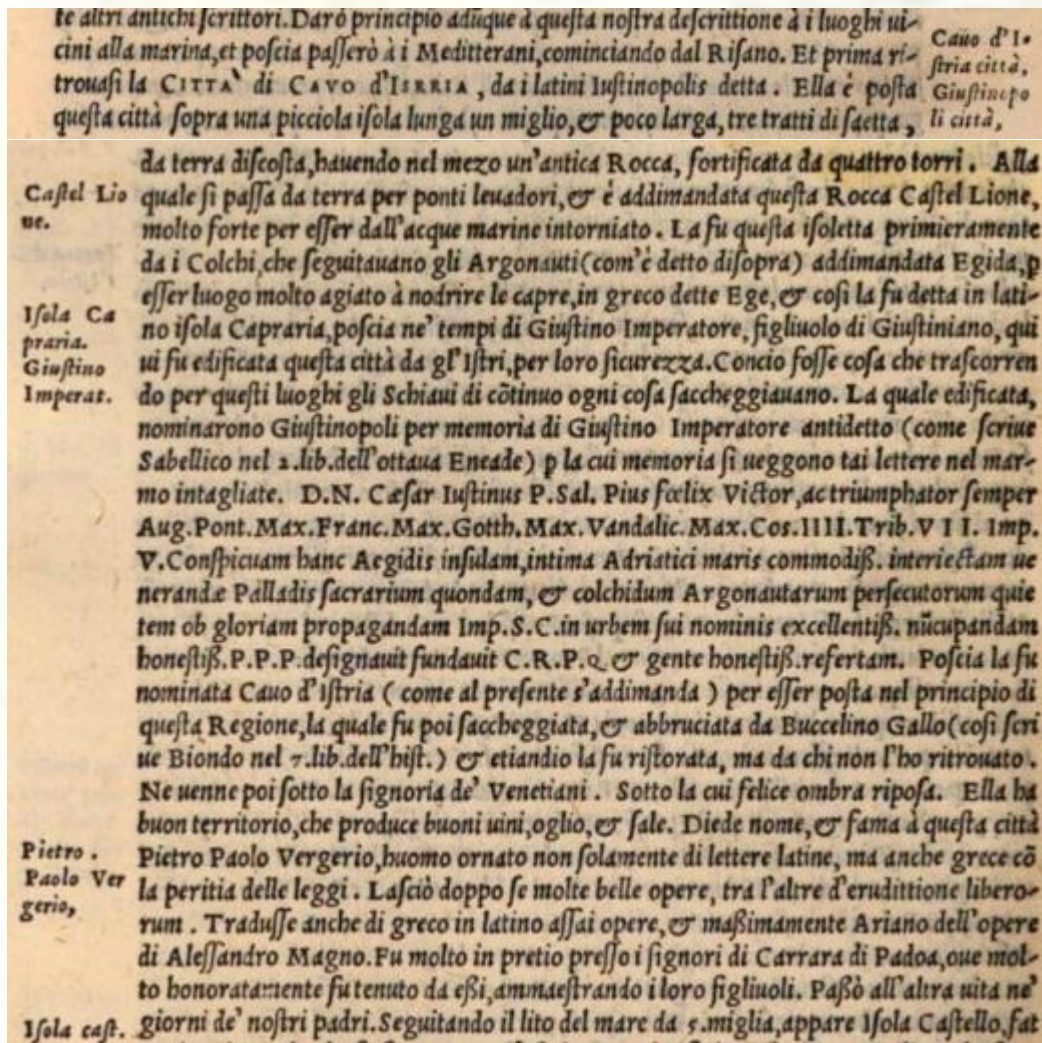 te altri antichi ſcrittori. Darò principio adũque à queſta noſtra deſcrittione à i luoghi ui-
cini alla marina, et poſcia paſſerò à i Meditterani, cominciando dal Riſano. Et prima ri-
trouaſi la CITTA' di CAVO d'ISRRIA, da i latini Iuſtinopolis detta. Ella è poſta
queſta città ſopra una picciola iſola lunga un miglio, & poco larga, tre tratti di ſaetta,
Cauo d'I-
ſtria città,
Giuſtinopo
li città,
da terra diſcoſta, hauendo nel mezo un'antica Rocca, fortificata da quattro torri. Alla
quale ſi paſſa da terra per ponti leuadori, & è addimandata queſta Rocca Caſtel Lione,
molto forte per eſſer dall'acque marine intorniato. La fu queſta iſoletta primieramente
da i Colchi, che ſeguitauano gli Argonauti (com'è detto diſopra) addimandata Egida, ꝑ
eſſer luogo molto agiato à nodrire le capre, in greco dette Ege, & coſi la fu detta in lati-
no iſola Capraria, poſcia ne' tempi di Giuſtino Imperatore, figliuolo di Giuſtiniano, qui
ui fu edificata queſta città da gl'Iſtri, per loro ſicurezza. Concio foſſe coſa che traſcorren
do per queſti luoghi gli Schiaui di cõtinuo ogni coſa ſaccheggiauano. La quale edificata,
nominarono Giuſtinopoli per memoria di Giuſtino Imperatore antidetto (come ſcriue
Sabellico nel 2. lib. dell'ottaua Eneade) ꝑ la cui memoria ſi ueggono tai lettere nel mar-
mo intagliate. D.N. Cæſar Iuſtinus P. Sal. Pius fœlix Victor, ac triumphator ſemper
Aug. Pont. Max. Franc. Max. Gotth. Max. Vandalic. Max. Cos. IIII. Trib. VII. Imp.
V. Conſpicuam hanc Aegidis inſulam, intima Adriatici maris commodiß. interiectam ue
nerandæ Palladis ſacrarium quondam, & colchidum Argonautarum perſecutorum quie
tem ob gloriam propagandam Imp. S.C. in urbem ſui nominis excellentiß. nũcupandam
honeſtiß. P.P.P. deſignauit fundauit C.R.P.Q. & gente honeſtiß. refertam. Poſcia la fu
nominata Cauo d'Iſtria (come al preſente s'addimanda) per eſſer poſta nel principio di
queſta Regione, la quale fu poi ſaccheggiata, & abbruciata da Buccelino Gallo (coſi ſcri
ue Biondo nel 7. lib. dell'hiſt.) & etiandio la fu riſtorata, ma da chi non l'ho ritrouato.
Ne uenne poi ſotto la ſignoria de' Venetiani. Sotto la cui felice ombra ripoſa. Ella ha
buon territorio, che produce buoni uini, oglio, & ſale. Diede nome, & fama à queſta città
Pietro Paolo Vergerio, huomo ornato non ſolamente di lettere latine, ma anche grece cõ
la peritia delle leggi. Laſciò doppo ſe molte belle opere, tra l'altre d'erudittione libero-
rum. Traduſſe anche di greco in latino aſſai opere, & maßimamente Ariano dell'opere
di Aleſſandro Magno. Fu molto in pretio preſſo i ſignori di Carrara di Padoa, oue mol-
to honoratamente fu tenuto da eßi, ammaeſtrando i loro figliuoli. Paßò all'altra uita ne'
giorni de' noſtri padri. Seguitando il lito del mare da 5. miglia, appare Iſola Caſtello, fat
Caſtel Lio
ne.
Iſola Ca
praria.
Giuſtino
Imperat.
Pietro.
Paolo Ver
gerio,
Iſola caſt.